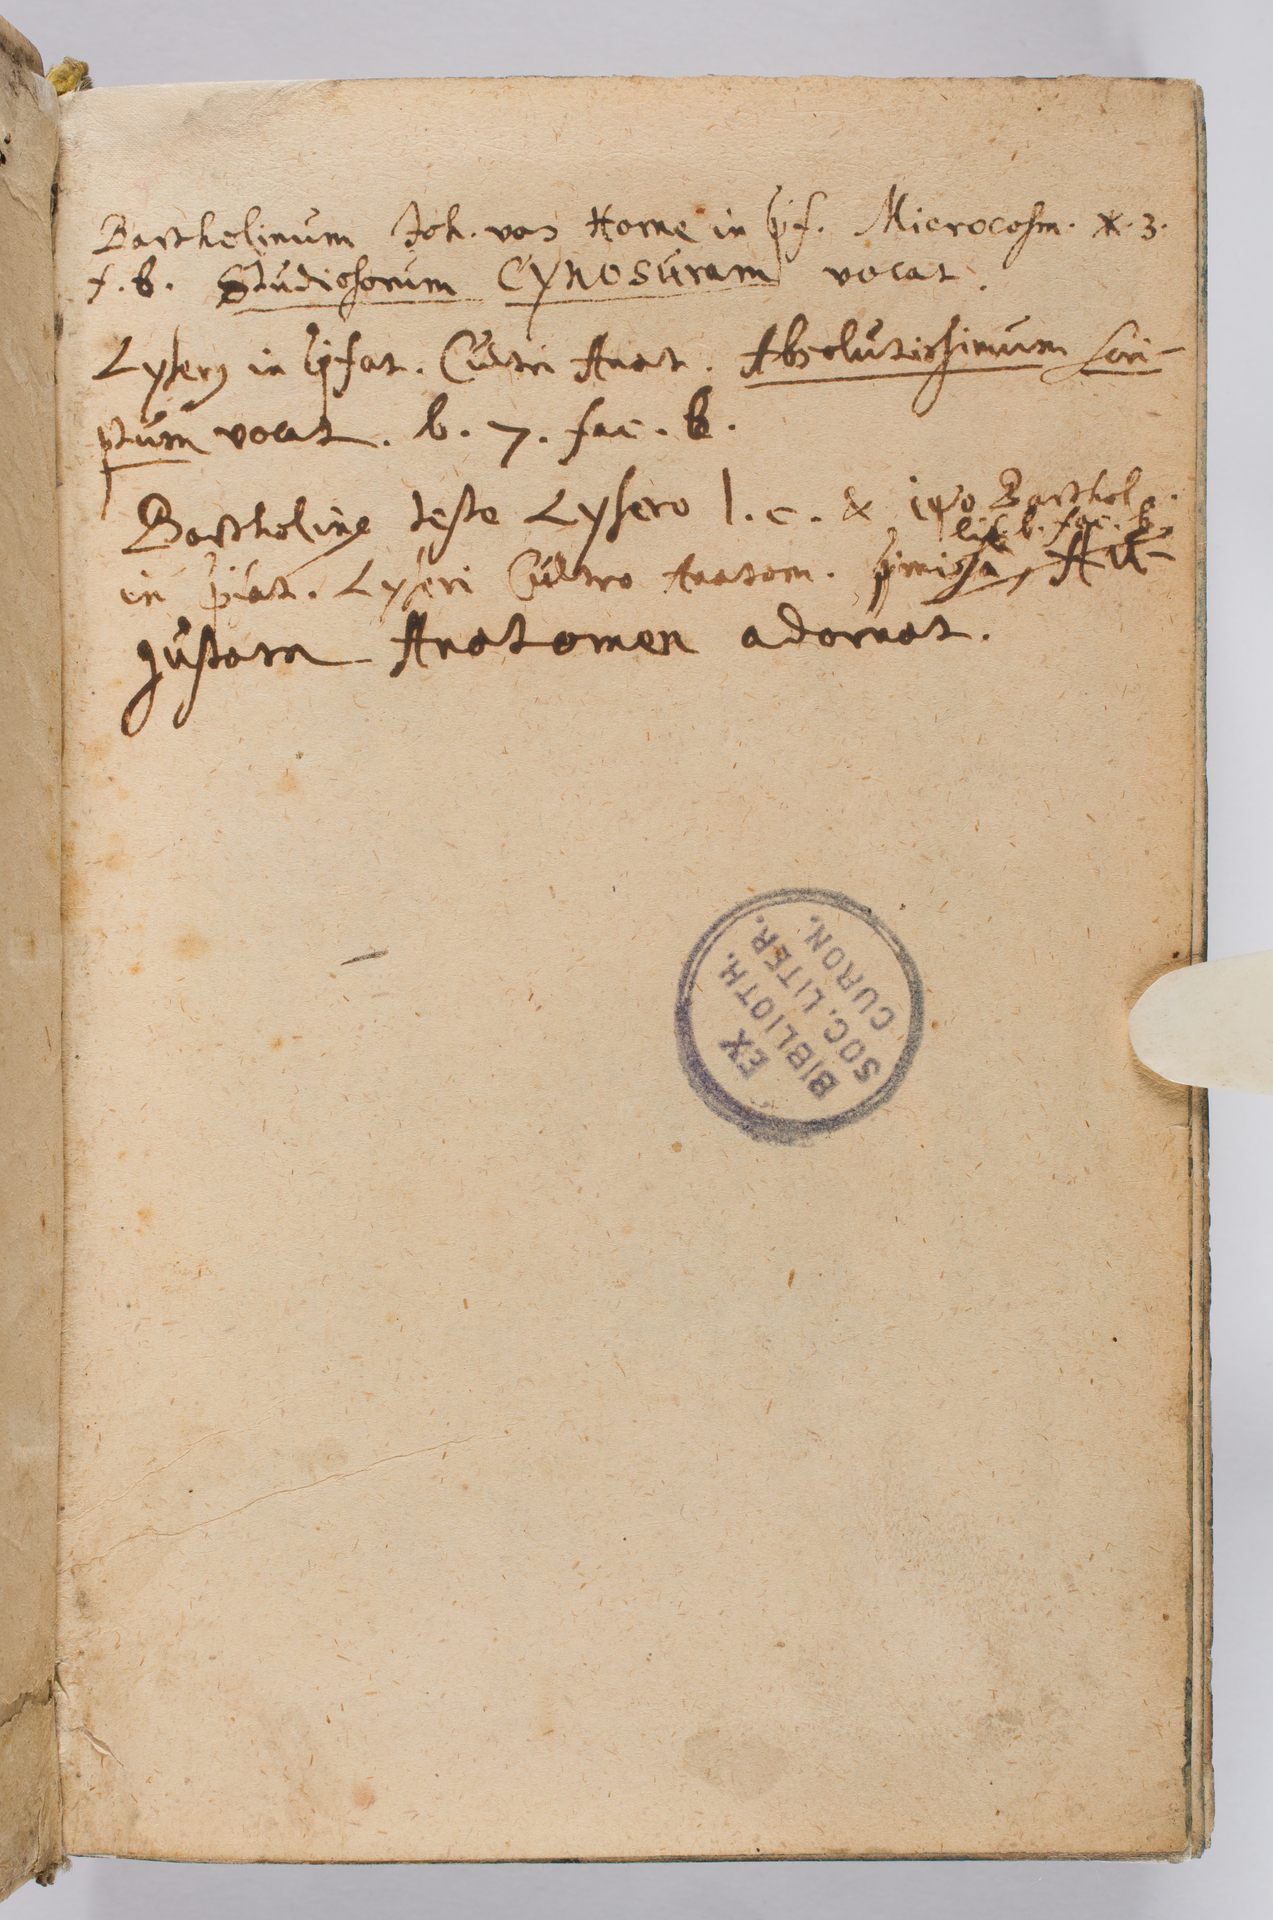 Bartholinum Joh. van Horne in pf. Microcosm. *. 3.
f. b. Studiosorum CYNOSURAM vocat.
Lyserq in pfat. Cultri Anat. Absolutissimum Scri-
ptum vocat. b. 7. fac. b.
Bartholinq teste Lysero l. c. & ipso Barthol.
lit. b. fac. b.
in pfat. Lyseri Cultro Anatom. pmissa, Au-
gustam Anatomen adornat.
EX
BIBLIOTH.
SOC. LITER.
CURON.